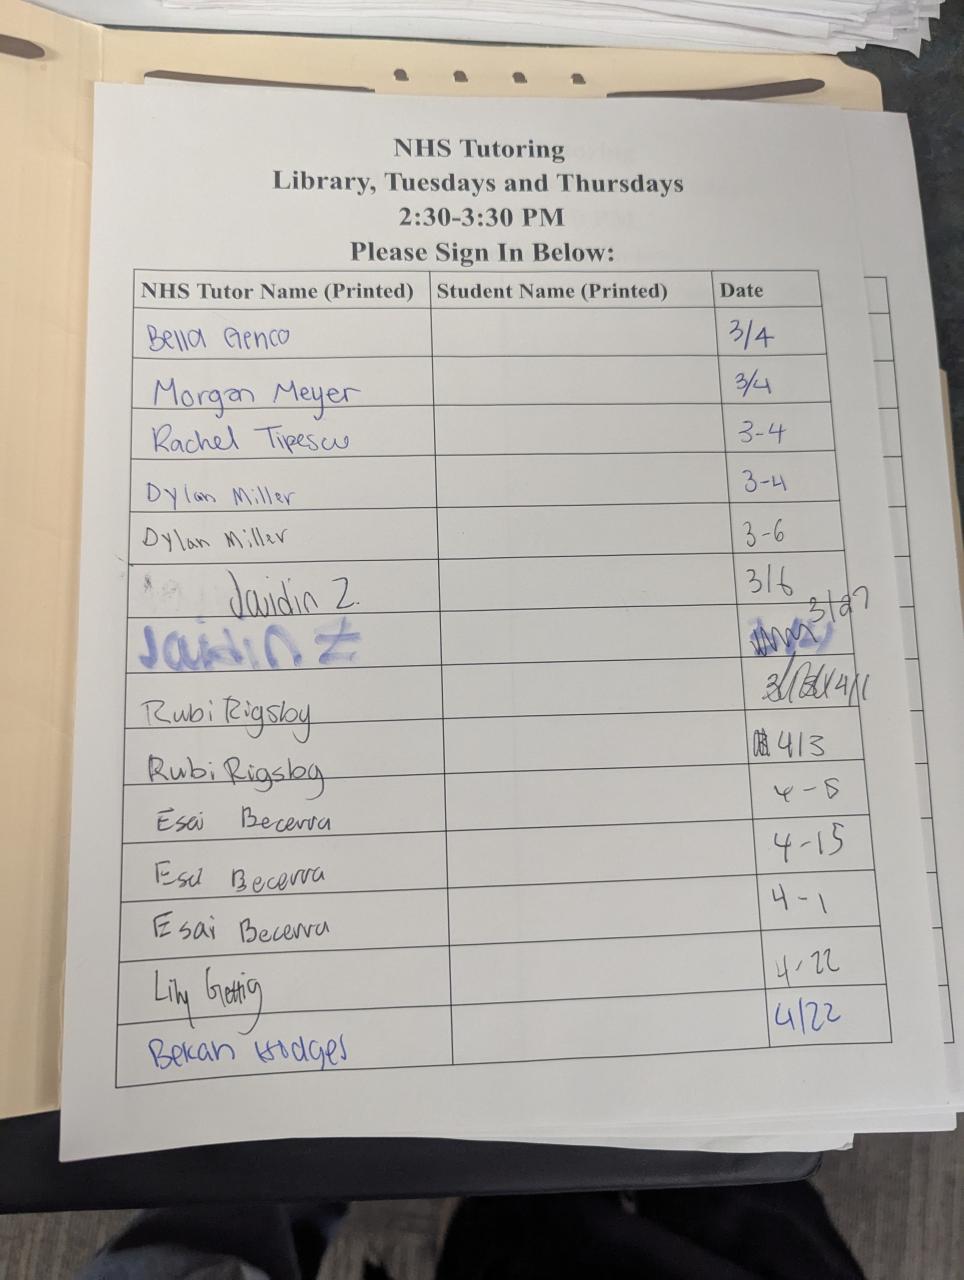 NHS Tutoring
Library, Tuesdays and Thursdays
2:30-3:30 PM
Please Sign In Below:
NHS Tutor Name (Printed) Student Name (Printed) Date
Bella Genco 3/4
Morgan Meyer 3/4
Rachel Tipescu 3-4
Dylan Miller 3-4
Dylan Miller 3-6
Jaidin Z. 3/6
Jaidin Z 3/27
Rubi Rigsby 4/1
Rubi Rigsby 4/3
Esai Becerra 4-8
Esai Becerra 4-15
Esai Becerra 4-1
Lily Gettig 4-22
Bekah Hodges 4/22